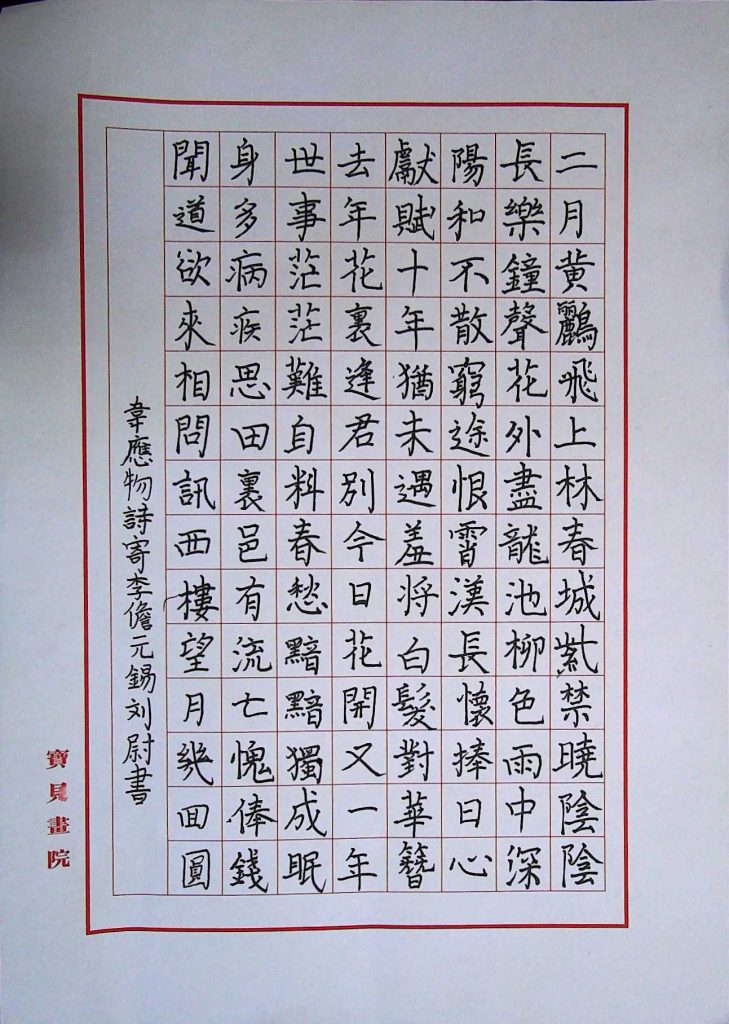 二月黃鸝飛上林春城紫禁曉陰陰
長樂鐘聲花外盡龍池柳色雨中深
陽和不散窮途恨霄漢長懷捧日心
獻賦十年猶未遇羞将白髮對華簪
去年花裏逢君別今日花開又一年
世事茫茫難自料春愁黯黯獨成眠
身多病疾思田裏邑有流亡愧俸錢
聞道欲來相問訊西樓望月幾回圓
韋應物詩寄李儋元錫刘尉書
寶見畫院